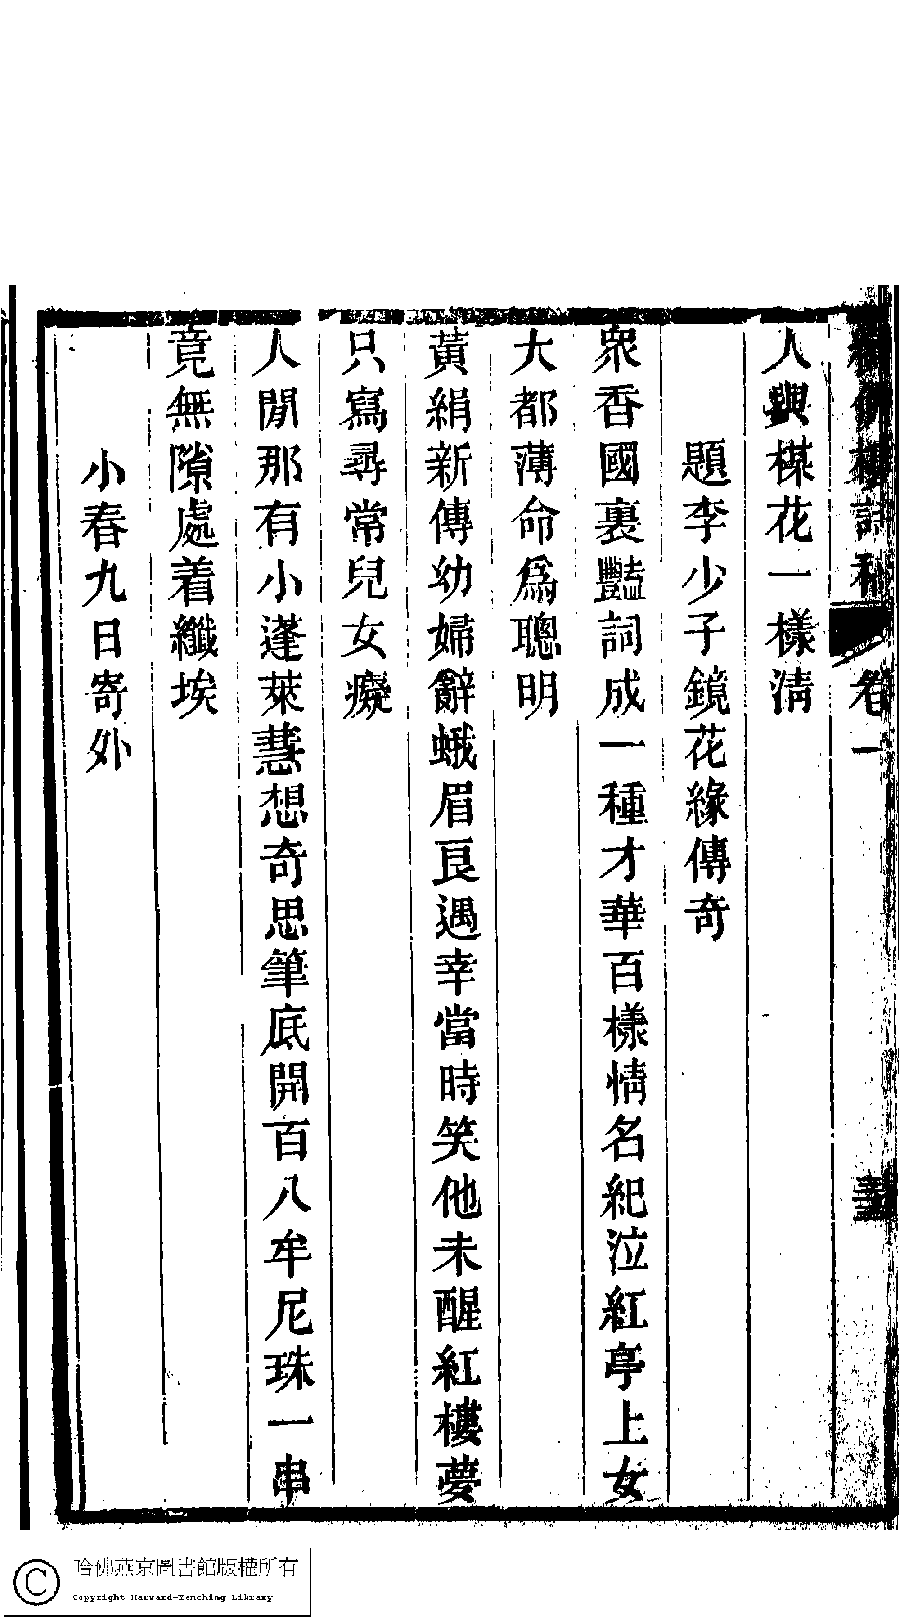 繡佛樓詩稿 卷一
人與楳花一樣清
題李少子鏡花緣傳奇
衆香國裏豔詞成一種才華百樣情名紀泣紅亭上女
大都薄命爲聰明
黃絹新傳幼婦辭蛾眉良遇幸當時笑他未醒紅樓夢
只寫尋常兒女癡
人閒那有小蓬萊慧想奇思筆底開百八牟尼珠一串
竟無隙處着纖埃
小春九日寄外
哈佛燕京圖書館版權所有
Copyright Harvard-Yenching Library